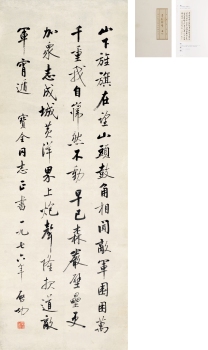 山下旌旗在望山頭鼓角相聞敵軍圍困萬
千重我自巋然不動早已森嚴壁壘更
加衆志成城黃洋界上炮聲隆報道敵
軍宵遁 寶全同志正書 一九七六年 啟功